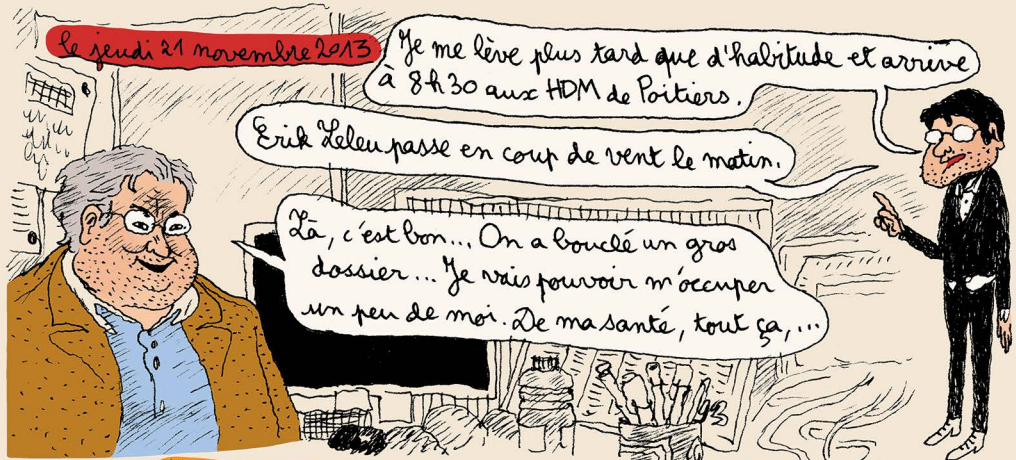 le jeudi 21 novembre 2013
Je me lève plus tard que d'habitude et arrive
à 8h30 aux HDM de Poitiers.
Erik Leleu passe en coup de vent le matin.
Là, c'est bon... On a bouclé un gros
dossier... Je vais pouvoir m'occuper
un peu de moi. De ma santé, tout ça,...